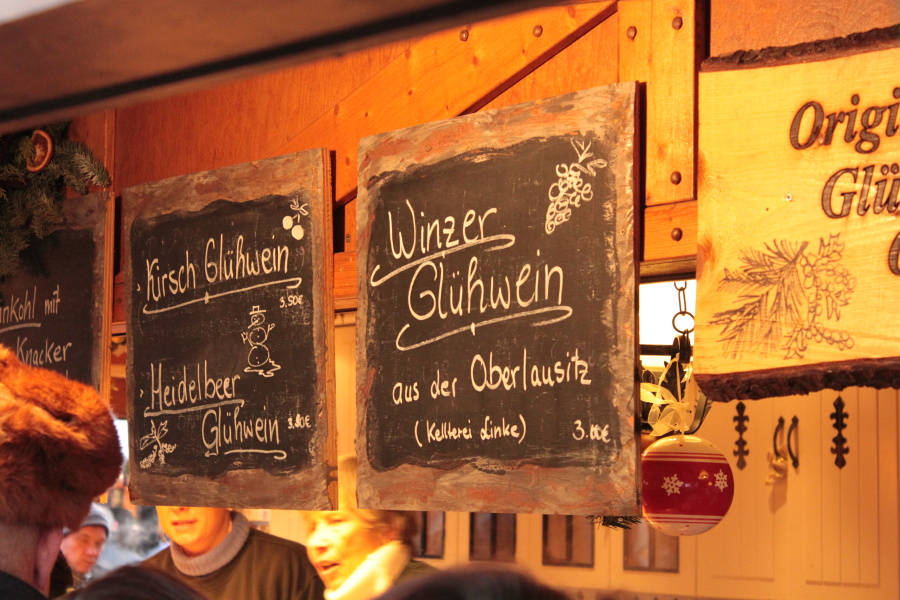 nKohl mit
Knacker
Kirsch Glühwein
3.50€
Heidelbeer
Glühwein 3.50€
Winzer
Glühwein
aus der Oberlausitz
(Kellterei Linke) 3.00€
Origi
Glü